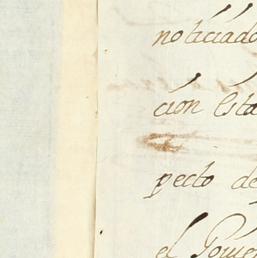 noticiado
ción esta
pecto de
el Gover